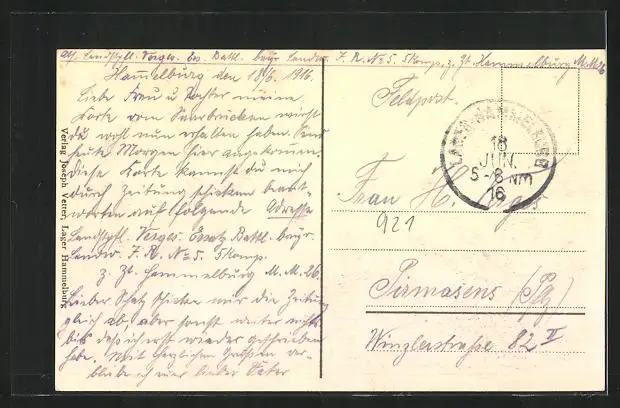 Landstpfl. Verges. Ers. Battl. bayr. Landw. J. R. No 5. 5 Komp. z. Zt. Hammelburg M. M. 26
Hammelburg den 18/6. 1916.
Liebe Frau u Tochter meine
Karte vom Saarbrücken wirst
du wohl nun erhalten haben. Sind
heute Morgen hier angekommen.
diese Karte kannst du mich
durch Zeitung schicken beant-
worten auf folgende Adresse
Landstpfl. Verges. Ersatz Battl. bayr.
Landw. J. R. No 5. 5 Komp.
z. Zt. Hammelburg M. M. 26.
Lieber Schatz schicke mir die Zeitung
gleich ab, aber sonst weiter nichts
bis dass ich erst wieder geschrieben
habe. Mit herzlichen Grüssen ver-
bleibe ich euer lieber Vater
Verlag Joseph Vetter, Lager Hammelburg
Feldpost.
LAGER HAMMELBURG
18
JUN.
5-6 NM
16
Frau H.
921
Pirmasens (Pfz)
Winzlerstraße 82 II